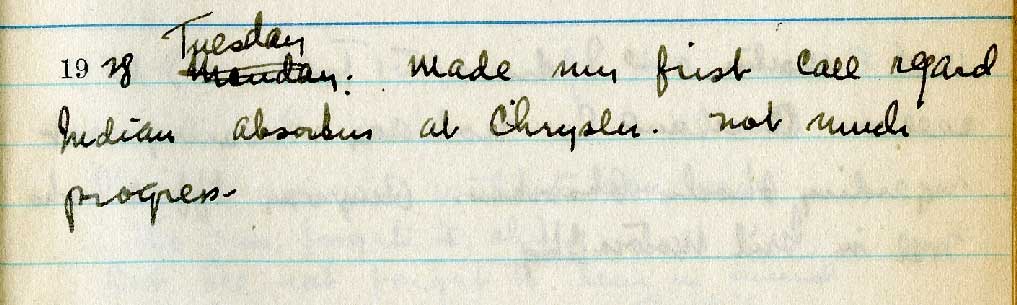 Tuesday
1928 Monday. Made my first call regard
Indian absorbers at Chrysler. Not much
progress.